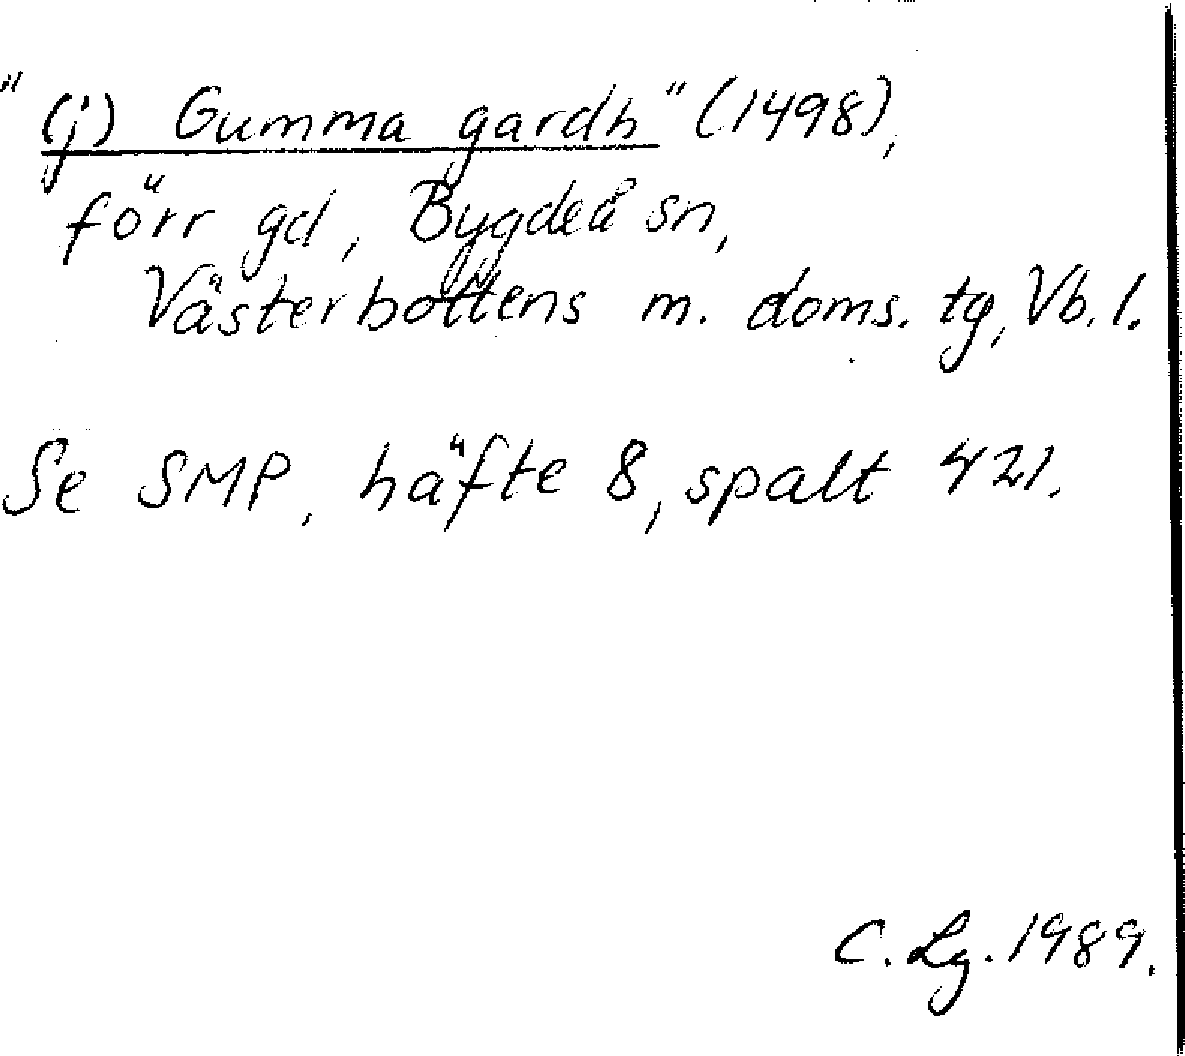 "(j) Gumma gardh" (1498),
förr gd, Bygdeå sn,
Västerbottens m. doms. tg, Vb. l.
Se SMP, häfte 8, spalt 421.
C. Lg. 1989.